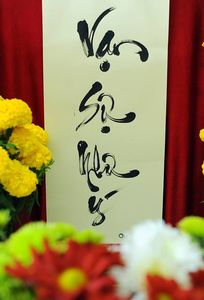 Vạn
Sự
Như
ý